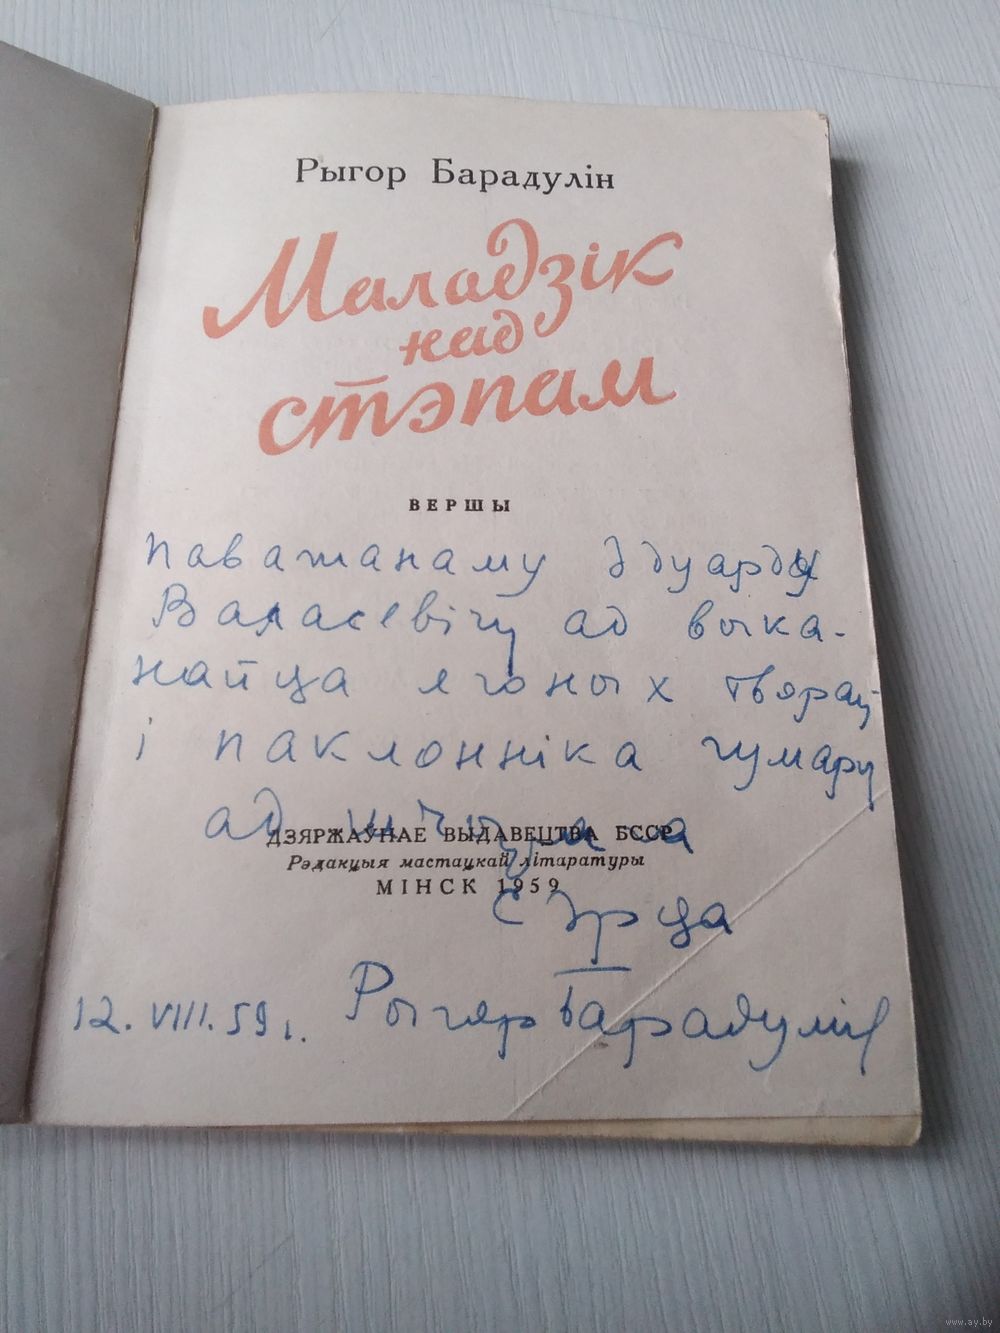 Рыгор Барадулін
Маладзік
над
стэпам
ВЕРШЫ
Паважанаму Эдуарду
Валасевічу ад выка-
наўца ягоных твораў
і паклонніка гумару
ад шчырага
ДЗЯРЖАЎНАЕ ВЫДАВЕЦТВА БССР
Рэдакцыя мастацкай літаратуры
МІНСК 1959
сэрца
12. VIII. 59 г. Рыгор Барадулін
www.ay.by